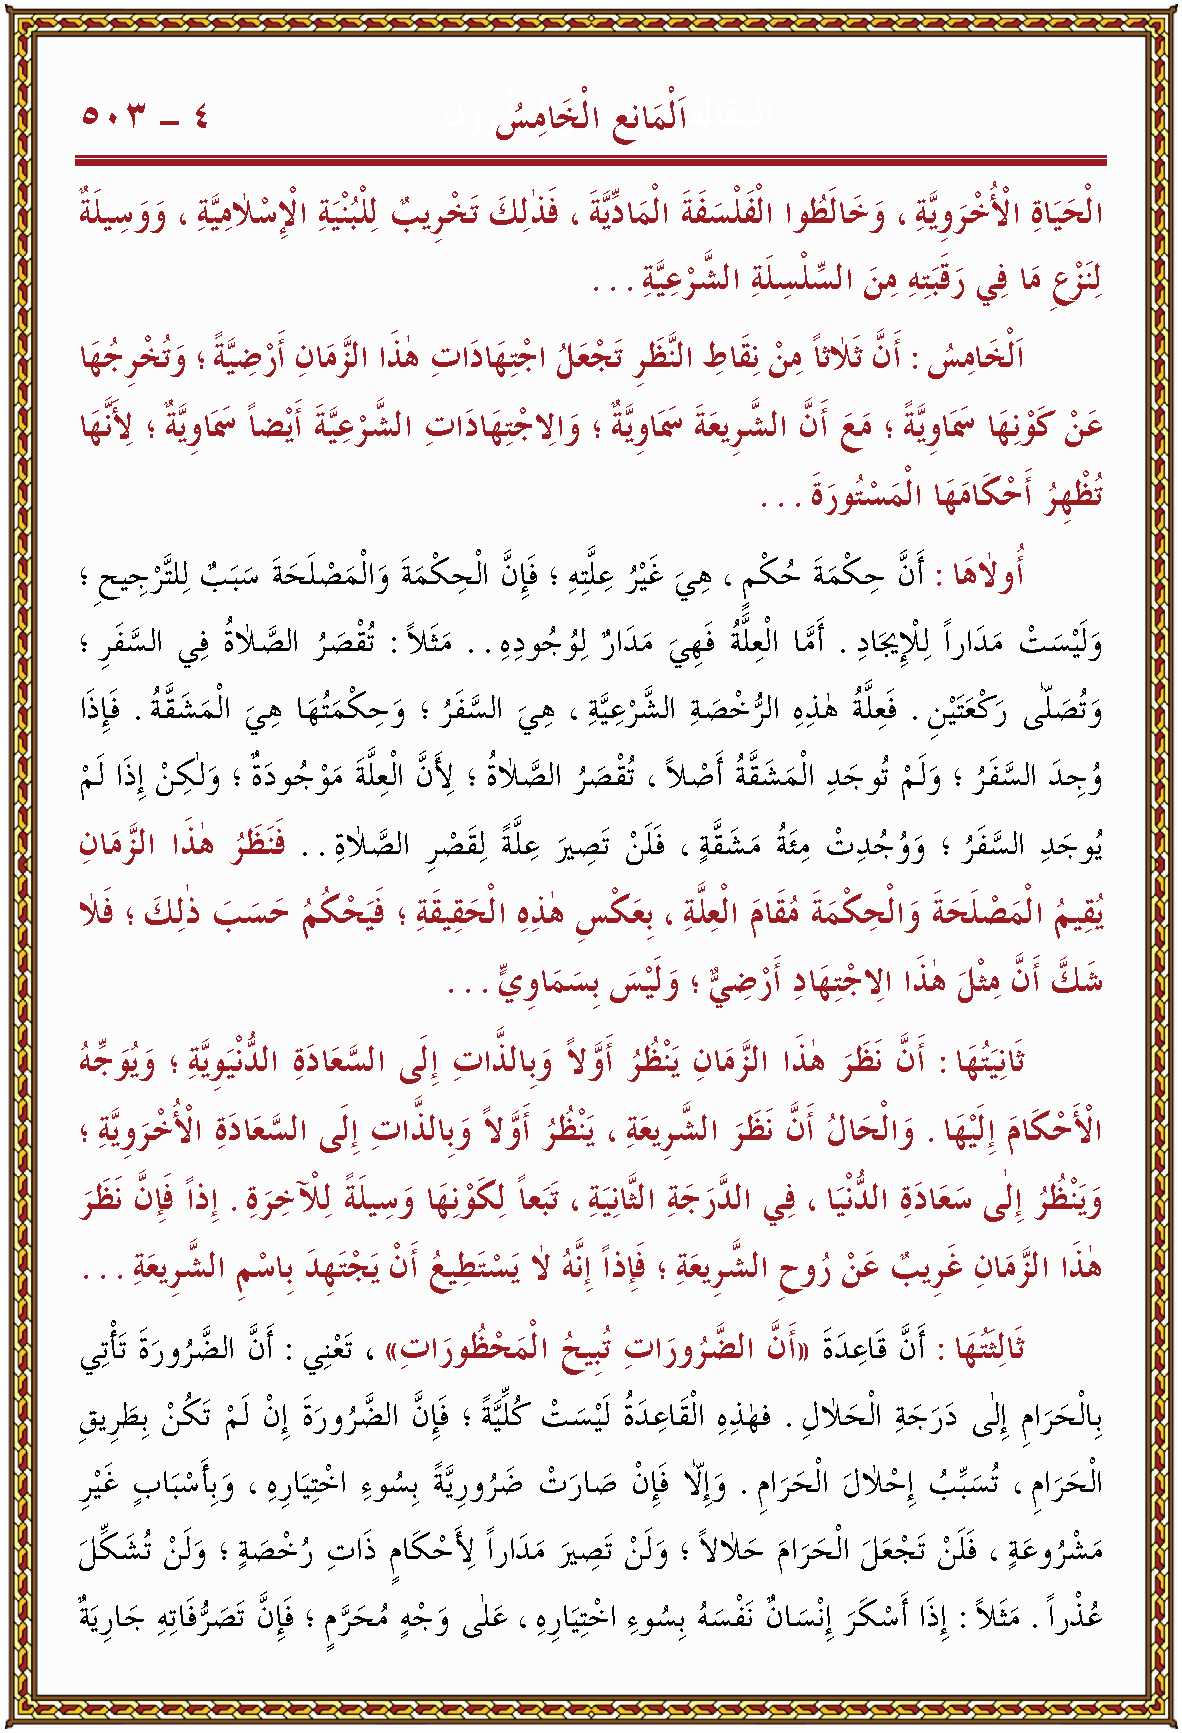 اَلْمَانع الْخَامِسُ ٤ – ٥٠٣
الْحَيَاةِ الْأُخْرَوِيَّةِ ، وَخَالَطُوا الْفَلْسَفَةَ الْمَادِّيَّةَ ، فَذٰلِكَ تَخْرِيبٌ لِلْبُنْيَةِ الْإِسْلاٰمِيَّةِ ، وَوَسِيلَةٌ
لِنَزْعِ مَا فِي رَقَبَتِهِ مِنَ السِّلْسِلَةِ الشَّرْعِيَّةِ . . .
اَلْخَامِسُ : أَنَّ ثَلاٰثاً مِنْ نِقَاطِ النَّظَرِ تَجْعَلُ اجْتِهَادَاتِ هٰذَا الزَّمَانِ أَرْضِيَّةً ؛ وَتُخْرِجُهَا
عَنْ كَوْنِهَا سَمَاوِيَّةً ؛ مَعَ أَنَّ الشَّرِيعَةَ سَمَاوِيَّةٌ ؛ وَاِلاجْتِهَادَاتِ الشَّرْعِيَّةَ أَيْضاً سَمَاوِيَّةٌ ؛ لِأَنَّهَا
تُظْهِرُ أَحْكَامَهَا الْمَسْتُورَةَ . . .
أُولاٰهَا : أَنَّ حِكْمَةَ حُكْمٍ ، هِيَ غَيْرُ عِلَّتِهِ ؛ فَإِنَّ الْحِكْمَةَ وَالْمَصْلَحَةَ سَبَبٌ لِلتَّرْجِيحِ ؛
وَلَيْسَتْ مَدَاراً لِلْإِيجَادِ . أَمَّا الْعِلَّةُ فَهِيَ مَدَارٌ لِوُجُودِهِ . . مَثَلاً : تُقْصَرُ الصَّلاٰةُ فِي السَّفَرِ ؛
وَتُصَلّٰى رَكْعَتَيْنِ . فَعِلَّةُ هٰذِهِ الرُّخْصَةِ الشَّرْعِيَّةِ ، هِيَ السَّفَرُ ؛ وَحِكْمَتُهَا هِيَ الْمَشَقَّةُ . فَإِذَا
وُجِدَ السَّفَرُ ؛ وَلَمْ تُوجَدِ الْمَشَقَّةُ أَصْلاً ، تُقْصَرُ الصَّلاٰةُ ؛ لِأَنَّ الْعِلَّةَ مَوْجُودَةٌ ؛ وَلٰكِنْ إِذَا لَمْ
يُوجَدِ السَّفَرُ ؛ وَوُجِدَتْ مِئَةُ مَشَقَّةٍ ، فَلَنْ تَصِيَر عِلَّةً لِقَصْرِ الصَّلاٰةِ . . فَنَظَرُ هٰذَا الزَّمَانِ
يُقِيمُ الْمَصْلَحَةَ وَالْحِكْمَةَ مُقَامَ الْعِلَّةِ ، بِعَكْسِ هٰذِهِ الْحَقِيقَةِ ؛ فَيَحْكُمُ حَسَبَ ذٰلِكَ ؛ فَلاٰ
شَكَّ أَنَّ مِثْلَ هٰذَا اِلاجْتِهَادِ أَرْضِيٌّ ؛ وَلَيْسَ بِسَمَاوِيٍّ . . .
ثَانِيَتُهَا : أَنَّ نَظَرَ هٰذَا الزَّمَانِ يَنْظُرُ أَوَّلاً وَبِالذَّاتِ إِلَى السَّعَادَةِ الدُّنْيَوِيَّةِ ؛ وَيُوَجِّهُ
الْأَحْكَامَ إِلَيْهَا . وَالْحَالُ أَنَّ نَظَرَ الشَّرِيعَةِ ، يَنْظُرُ أَوَّلاً وَبِالذَّاتِ إِلَى السَّعَادَةِ الْأُخْرَوِيَّةِ ؛
وَيَنْظُرُ إِلٰى سَعَادَةِ الدُّنْيَا ، فِي الدَّرَجَةِ الثَّانِيَةِ ، تَبَعاً لِكَوْنِهَا وَسِيلَةً لِلْآخِرَةِ . إِذاً فَإِنَّ نَظَرَ
هٰذَا الزَّمَانِ غَرِيبٌ عَنْ رُوحِ الشَّرِيعَةِ ؛ فَإِذاً إِنَّهُ لاٰ يَسْتَطِيعُ أَنْ يَجْتَهِدَ بِاسْمِ الشَّرِيعَةِ . . .
ثَالِثَتُهَا : أَنَّ قَاعِدَةَ «أَنَّ الضَّرُورَاتِ تُبِيحُ الْمَحْظُورَاتِ» ، تَعْنِي : أَنَّ الضَّرُورَةَ تَأْتِي
بِالْحَرَامِ إِلٰى دَرَجَةِ الْحَلاٰلِ . فَهٰذِهِ الْقَاعِدَةُ لَيْسَتْ كُلِّيَّةً ؛ فَإِنَّ الضَّرُورَةَ إِنْ لَمْ تَكُنْ بِطَرِيقِ
الْحَرَامِ ، تُسَبِّبُ إِحْلاٰلَ الْحَرَامِ . وَإِلاّٰ فَإِنْ صَارَتْ ضَرُورِيَّةً بِسُوءِ اخْتِيَارِهِ ، وَبِأَسْبَابٍ غَيْرِ
مَشْرُوعَةٍ ، فَلَنْ تَجْعَلَ الْحَرَامَ حَلاٰلاً ؛ وَلَنْ تَصِيَر مَدَاراً لِأَحْكَامٍ ذَاتِ رُخْصَةٍ ؛ وَلَنْ تُشَكِّلَ
عُذْراً . مَثَلاً : إِذَا أَسْكَرَ إِنْسَانٌ نَفْسَهُ بِسُوءِ اخْتِيَارِهِ ، عَلٰى وَجْهٍ مُحَرَّمٍ ؛ فَإِنَّ تَصَرُّفَاتِهِ جَارِيَةٌ